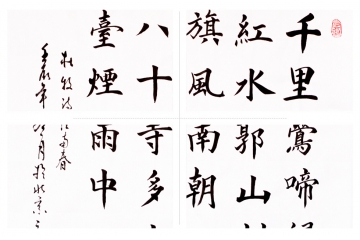 千里鶯啼
紅水郭山
旗風南朝
八十寺多
臺煙雨中
杜牧詩江南春
壬辰年月於北京